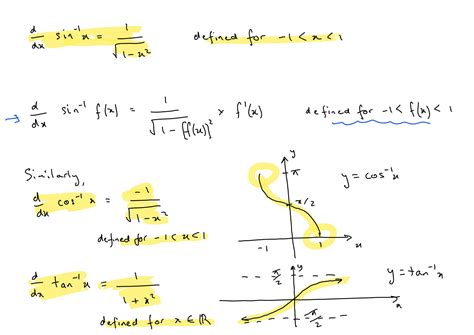 d/dx sin⁻¹ x = 1/√(1-x²) defined for -1 < x < 1
→ d/dx sin⁻¹ f(x) = 1/√(1-[f(x)]²) × f'(x) defined for -1 < f(x) < 1
Similarly,
d/dx cos⁻¹ x = -1/√(1-x²)
defined for -1 < x < 1
y
π
π/2
-1
1
x
y = cos⁻¹ x
d/dx tan⁻¹ x = 1/(1+x²)
defined for x ∈ ℝ
π/2
y
-π/2
x
y = tan⁻¹ x